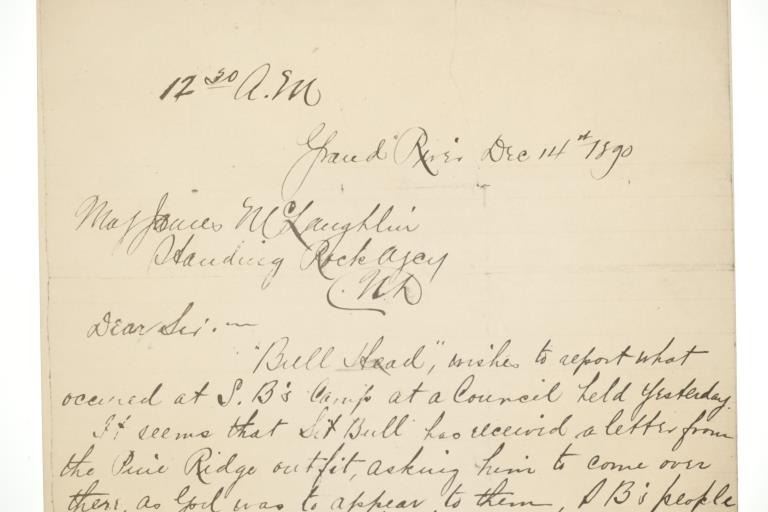 12 30 A.M
Grand River Dec 14th 1890
Maj James McLaughlin
Standing Rock Agcy
N.D
Dear Sir.—
"Bull Head", wishes to report what
occured at S.B's Camp at a Council held yesterday.
It seems that Sit Bull has received a letter from
the Pine Ridge outfit, asking him to come over
there, as God was to appear to them, S B's people